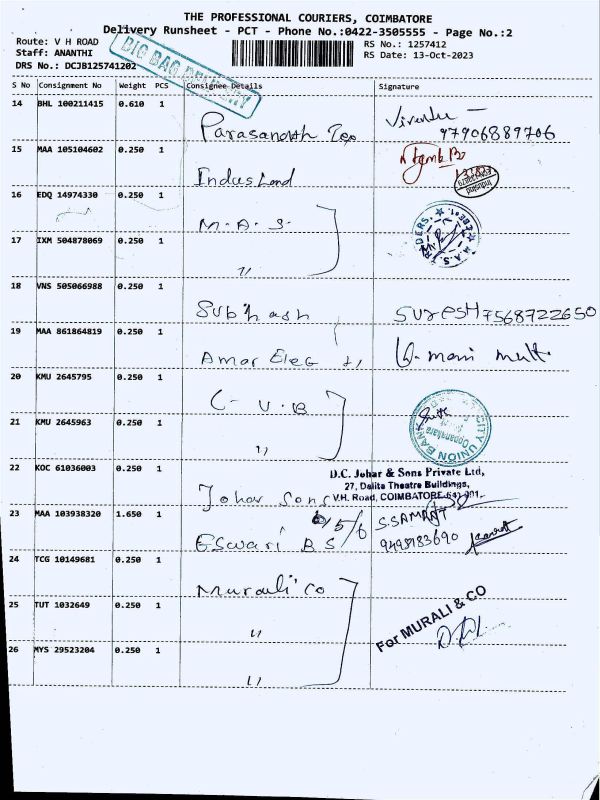 THE PROFESSIONAL COURIERS, COIMBATORE
Delivery Runsheet - PCT - Phone No.:0422-3505555 - Page No.:2
Route: V H ROAD
Staff: ANANTHI
DRS No.: DCJB125741202
RS No.: 1257412
RS Date: 13-Oct-2023
BIG BAG DELIVERY
S No Consignment No Weight PCS Consignee Details Signature
14 BHL 100211415 0.610 1 Parasanath Tex 97906889706
15 MAA 105104602 0.250 1 IndusLand
16 EDQ 14974330 0.250 1 M.A.S.
17 IXM 504878069 0.250 1 "
18 VNS 505066988 0.250 1 Subhash SURESH 7568722650
19 MAA 861864819 0.250 1 Amar Elec
20 KMU 2645795 0.250 1 C.U.B
CITY UNION BANK
21 KMU 2645963 0.250 1 "
22 KOC 61036003 0.250 1 Johar Sons
D.C. Johar & Sons Private Ltd,
27, Dalita Theatre Buildings,
V.H. Road, COIMBATORE-641 001.
23 MAA 103938320 1.650 1 Eswari B S
9498183690
24 TCG 10149681 0.250 1 Murali Co
25 TUT 1032649 0.250 1 "
For MURALI & CO
26 MYS 29523204 0.250 1 "